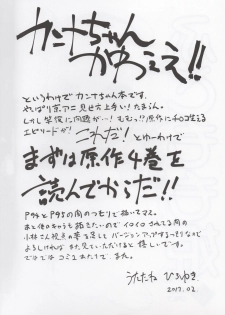 カンナちゃん
かわゑぇ!!
というわけでカンナちゃん本です。
やっぱり京アニ見せ方上手い!たまらん。
しかし実際に問題が…!むむっ?!原作にチョロ使える
エピソードが! これだ! とゆーわけで
まずは原作4巻を
読んでからだ!!
P94とP95の間のつもりで描いてマス。
あと他のキャラも描きたいので イロイロされてる間の
小林さん視点の夢を足して バージョンアップするつもりなので
よろしければ また見ていただけると嬉しいです。
ではでは コミ1あたりで。また。
うたたね ひろゆき
2017.02